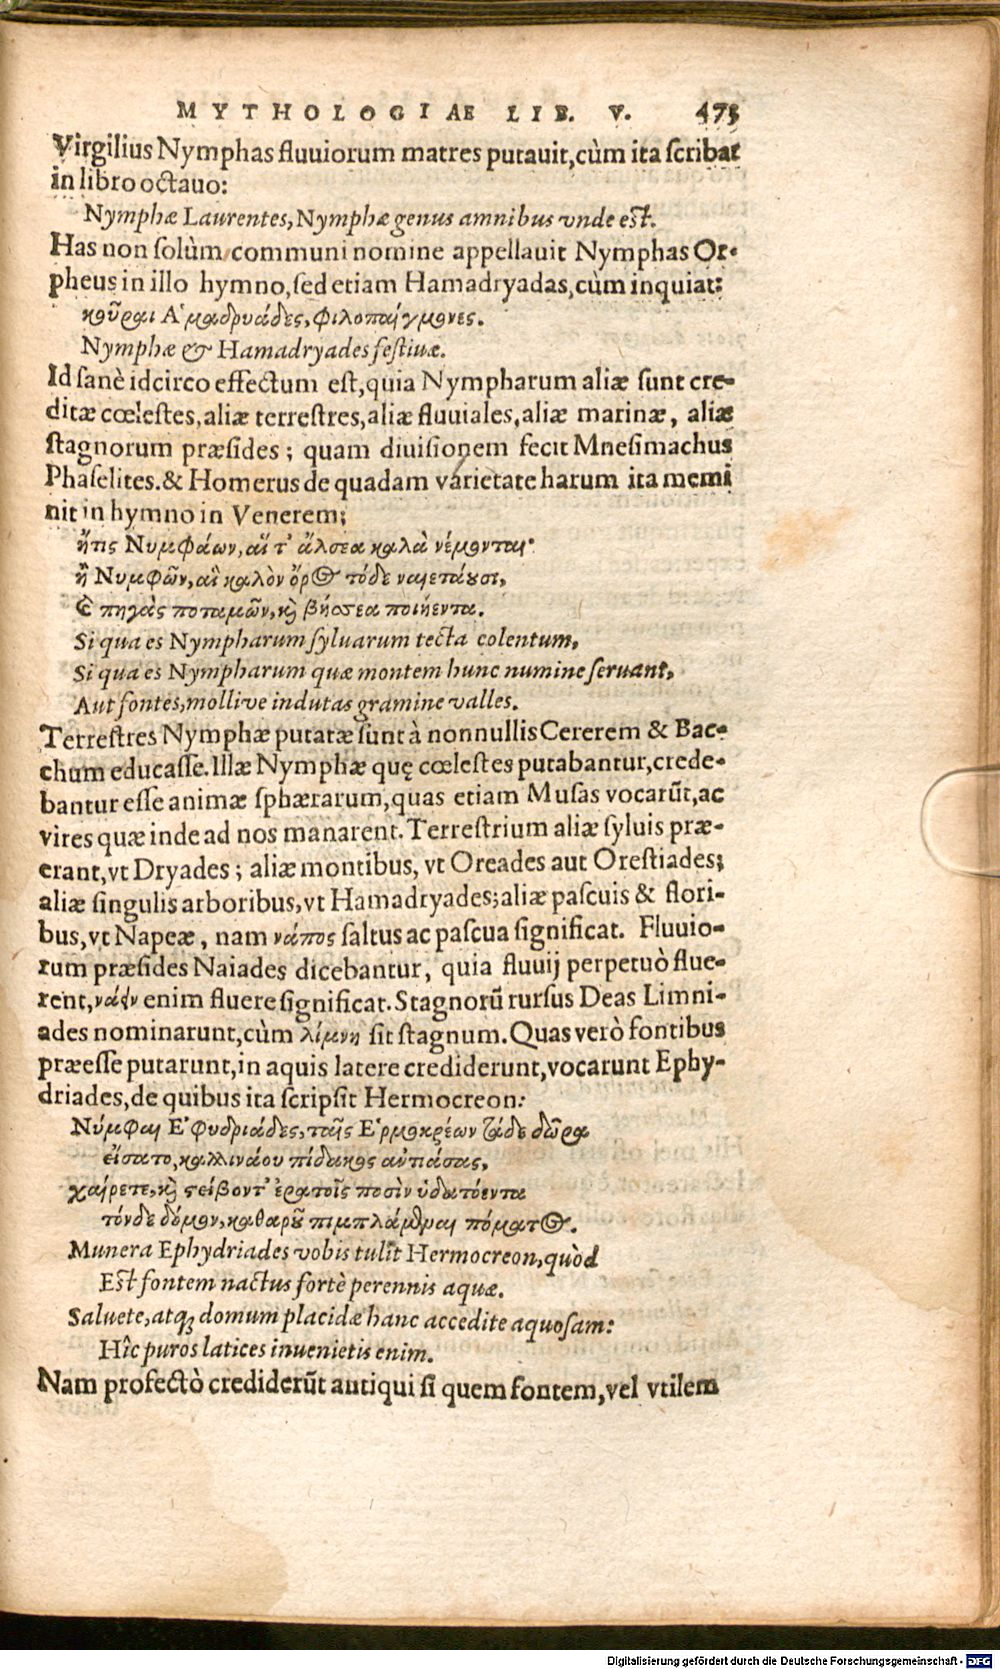 MYTHOLOGIAE LIB. V. 475
Virgilius Nymphas fluuiorum matres putauit, cùm ita scribat
in libro octauo:
Nymphæ Laurentes, Nymphæ genus amnibus vnde est.
Has non solùm communi nomine appellauit Nymphas Or-
pheus in illo hymno, sed etiam Hamadryadas, cùm inquiat:
κοῦραι Ἁμαδρυάδες, φιλοπαίγμονες.
Nymphæ & Hamadryades festiuæ.
Id sanè idcirco effectum est, quia Nympharum aliæ sunt cre-
ditæ cœlestes, aliæ terrestres, aliæ fluuiales, aliæ marinæ, aliæ
stagnorum præsides; quam diuisionem fecit Mnesimachus
Phaselites. & Homerus de quadam varietate harum ita memi
nit in hymno in Venerem;
ἥτις Νυμφάων, αἵ τ' ἄλσεα καλὰ νέμονται·
ἢ Νυμφῶν, αἳ καλὸν ὄρος τόδε ναιετάουσι,
ϗ πηγὰς ποταμῶν, ϗ βήσσεα ποιήεντα.
Si qua es Nympharum syluarum tecta colentum,
Si qua es Nympharum quæ montem hunc numine seruant,
Aut fontes, mollive indutas gramine valles.
Terrestres Nymphæ putatæ sunt à nonnullis Cererem & Bac-
chum educasse. Illæ Nymphæ quę cœlestes putabantur, crede-
bantur esse animæ sphærarum, quas etiam Musas vocarũt, ac
vires quæ inde ad nos manarent. Terrestrium aliæ syluis præ-
erant, vt Dryades; aliæ montibus, vt Oreades aut Orestiades;
aliæ singulis arboribus, vt Hamadryades; aliæ pascuis & flori-
bus, vt Napeæ, nam νάπος saltus ac pascua significat. Fluuio-
rum præsides Naiades dicebantur, quia fluuij perpetuò flue-
rent, νάειν enim fluere significat. Stagnorũ rursus Deas Limni-
ades nominarunt, cùm λίμνη sit stagnum. Quas verò fontibus
præesse putarunt, in aquis latere crediderunt, vocarunt Ephy-
driades, de quibus ita scripsit Hermocreon:
Νύμφαι Ἐφυδριάδες, ταῖς Ἑρμοκρέων τάδε δῶρα
εἵσατο, καλλινάου πίδακος ἀντιάσας,
χαίρετε, ϗ στείβοντ' ἐρατοῖς ποσὶν ὑδατόεντα
τόνδε δόμον, καθαροῦ πιμπλάμεναι πόματος.
Munera Ephydriades vobis tulit Hermocreon, quòd
Est fontem nactus fortè perennis aquæ.
Saluete, atq; domum placidæ hanc accedite aquosam:
Hîc puros latices inuenietis enim.
Nam profectò crediderũt antiqui si quem fontem, vel vtilem
Digitalisierung gefördert durch die Deutsche Forschungsgemeinschaft - DFG